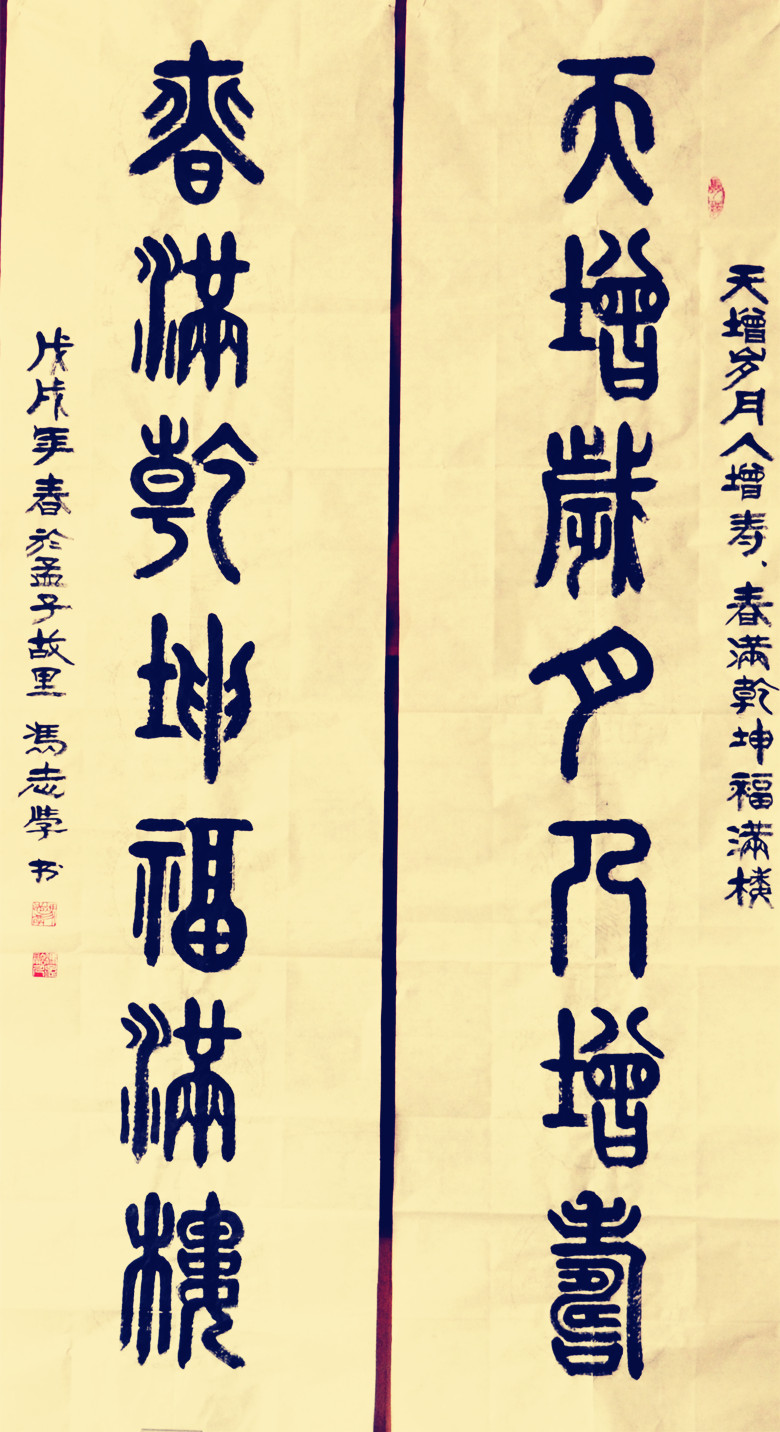 天增岁月人增寿、春满乾坤福满楼
天增歲月人增壽
春滿乾坤福滿樓
戊戌年春於孟子故里 馮志學 书